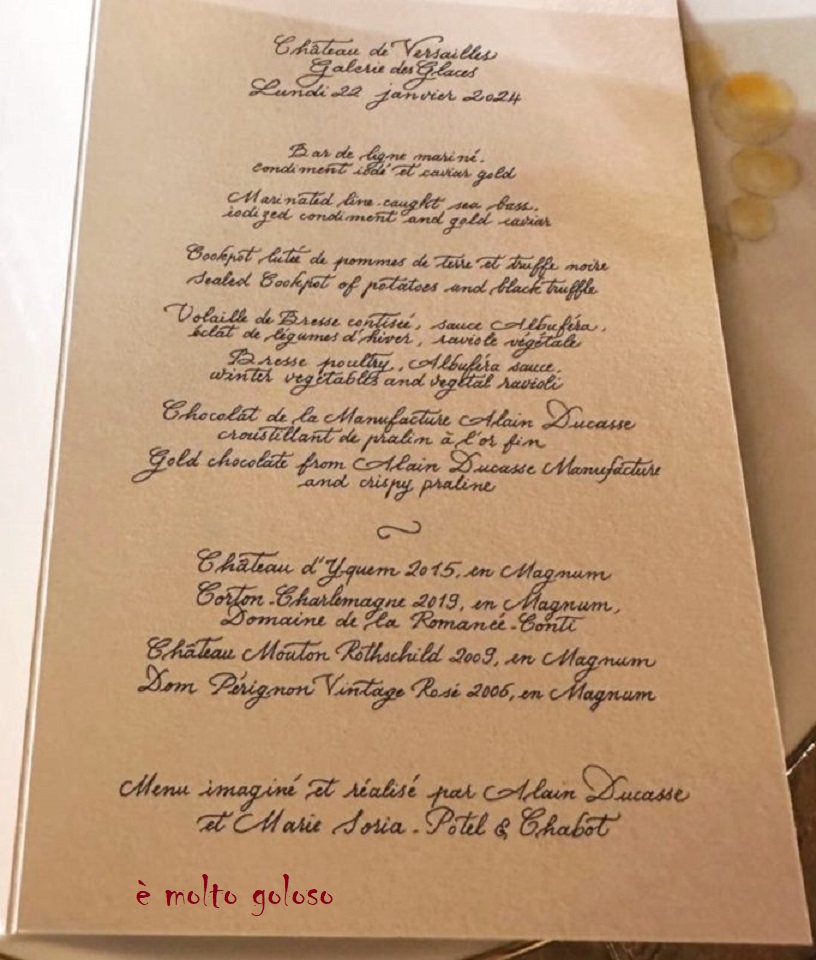 Château de Versailles
Galerie des Glaces
Lundi 22 janvier 2024
Bar de ligne mariné,
condiment iodé et caviar gold
Marinated line-caught sea bass,
iodized condiment and gold caviar
Cookpot lutée de pommes de terre et truffe noire
Sealed Cookpot of potatoes and black truffle
Volaille de Bresse contiseé, sauce Albuféra,
éclat de légumes d'hiver, raviole végétale
Bresse poultry, Albuféra sauce,
winter vegetables and vegetal ravioli
Chocolat de la Manufacture Alain Ducasse
croustillant de pralin à l'or fin
Gold chocolate from Alain Ducasse Manufacture
and crispy praline
Château d'Yquem 2015, en Magnum
Corton-Charlemagne 2019, en Magnum,
Domaine de la Romanée-Conti
Château Mouton Rothschild 2009, en Magnum
Dom Pérignon Vintage Rosé 2006, en Magnum
Menu imaginé et réalisé par Alain Ducasse
et Marie Soria - Potel & Chabot
è molto goloso